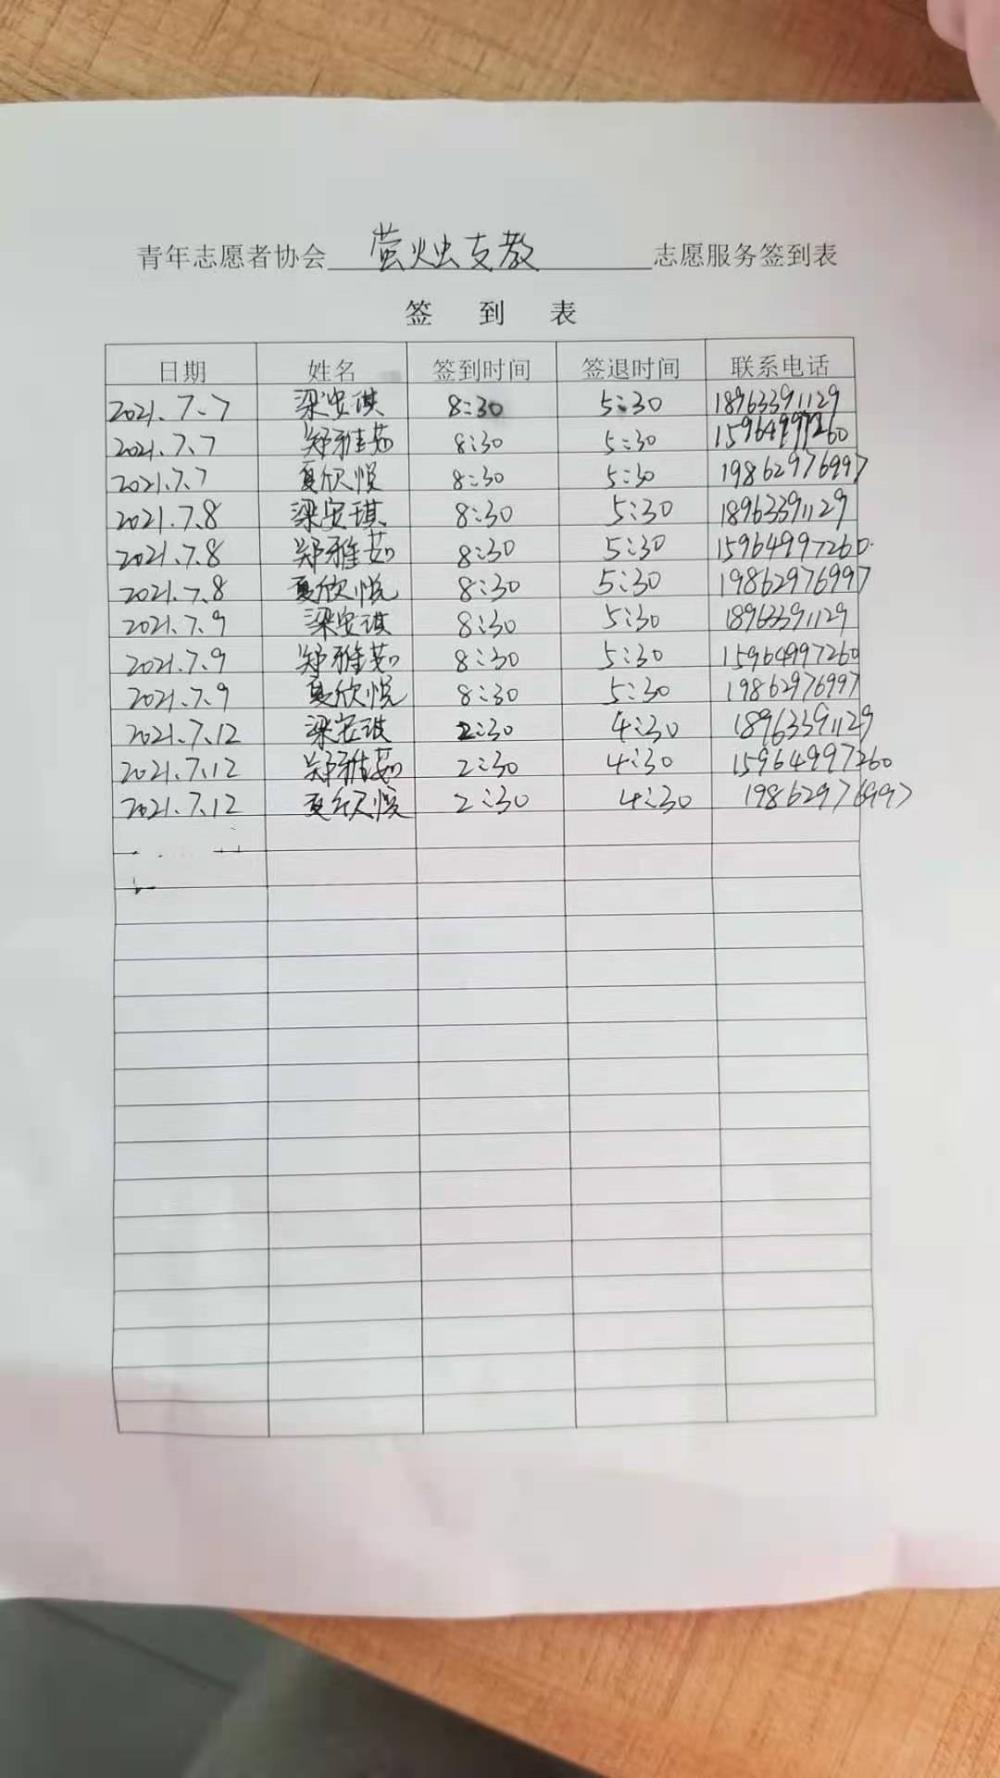 青年志愿者协会 萤烛支教 志愿服务签到表
签 到 表
日期 姓名 签到时间 签退时间 联系电话
2021.7.7 梁安琪 8:30 5:30 18963391129
2021.7.7 郑雅茹 8:30 5:30 15964997260
2021.7.7 夏欣悦 8:30 5:30 19862976997
2021.7.8 梁安琪 8:30 5:30 18963391129
2021.7.8 郑雅茹 8:30 5:30 15964997260
2021.7.8 夏欣悦 8:30 5:30 19862976997
2021.7.9 梁安琪 8:30 5:30 18963391129
2021.7.9 郑雅茹 8:30 5:30 15964997260
2021.7.9 夏欣悦 8:30 5:30 19862976997
2021.7.12 梁安琪 2:30 4:30 18963391129
2021.7.12 郑雅茹 2:30 4:30 15964997260
2021.7.12 夏欣悦 2:30 4:30 19862976997